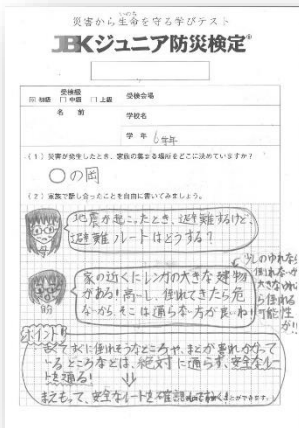 災害から生命を守る学びテスト
いのち
JBKジュニア防災検定®
受検級
初級 □ 中級 □ 上級
受検会場
名 前
学校名
学 年 6学年
(1)災害が発生したとき、家族の集まる場所をどこに決めていますか?
〇の岡
(2)家族で話し合ったことを自由に書いてみましょう。
地震が起こったとき、避難するけど、
避難ルートはどうする?
家の近くにレンガの大きな建物
がある!高いし、倒れてきたら危
ないから、そこは通らない方が良いね!
自分
少しのゆれなら
倒れないが
大きなゆれ
なら倒れる
可能性
が!!
ポイント!!
古くてすぐに倒れそうなところや、まどが割れかかって
いるところなどは、絶対に通らず、安全なルー
トを通る!
まえもって、安全なルートを確認
ができます。